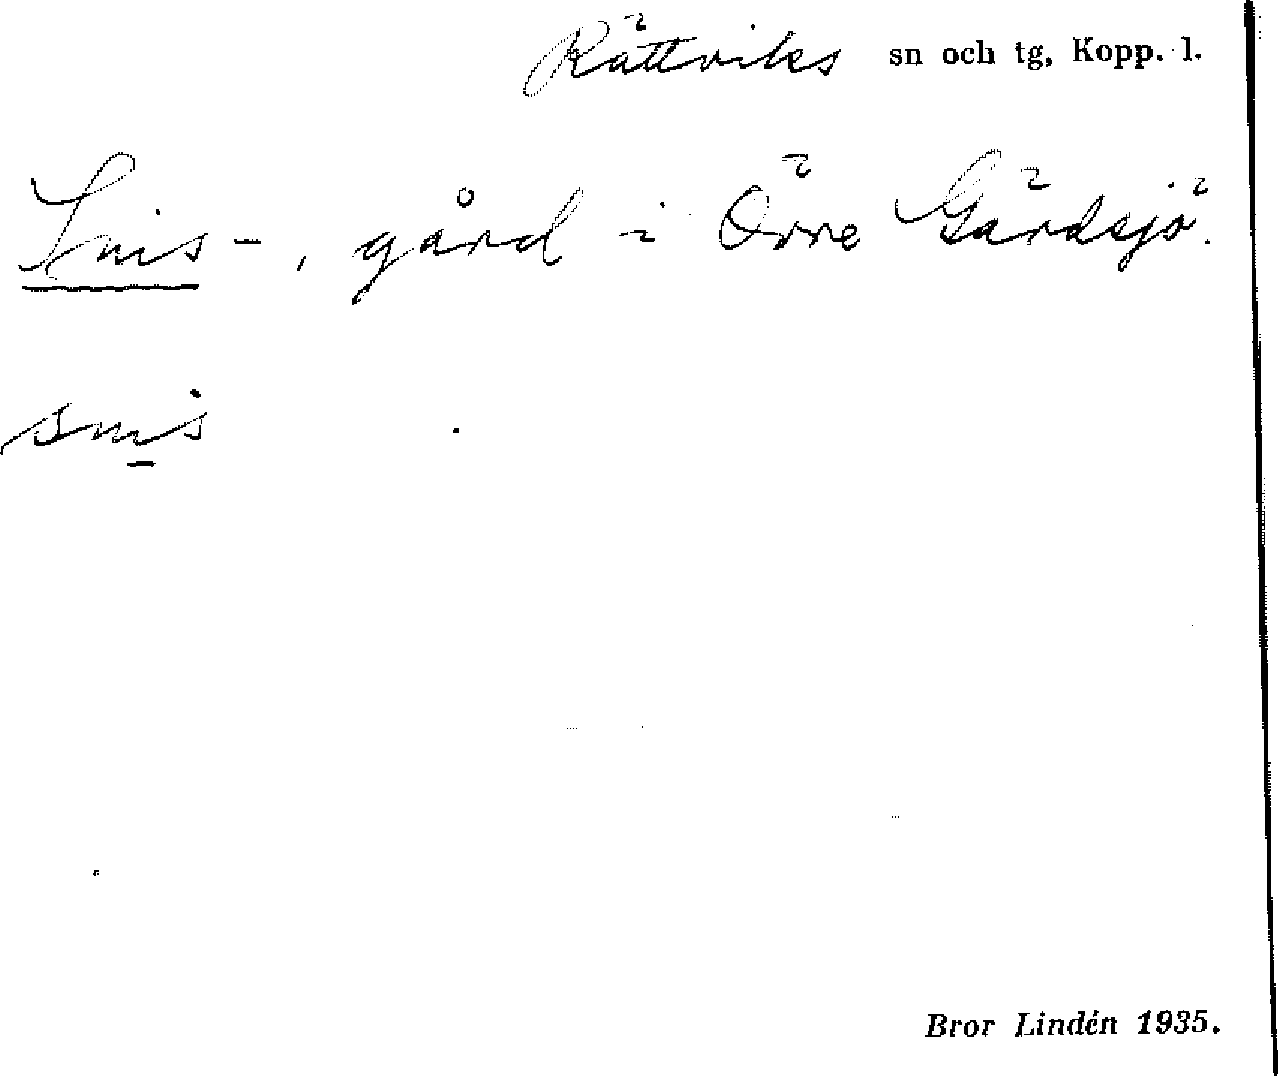 Rättviks sn och tg, Kopp. l.
Snis-, gård i Övre Gärdsjö.
snis
Bror Lindén 1935.